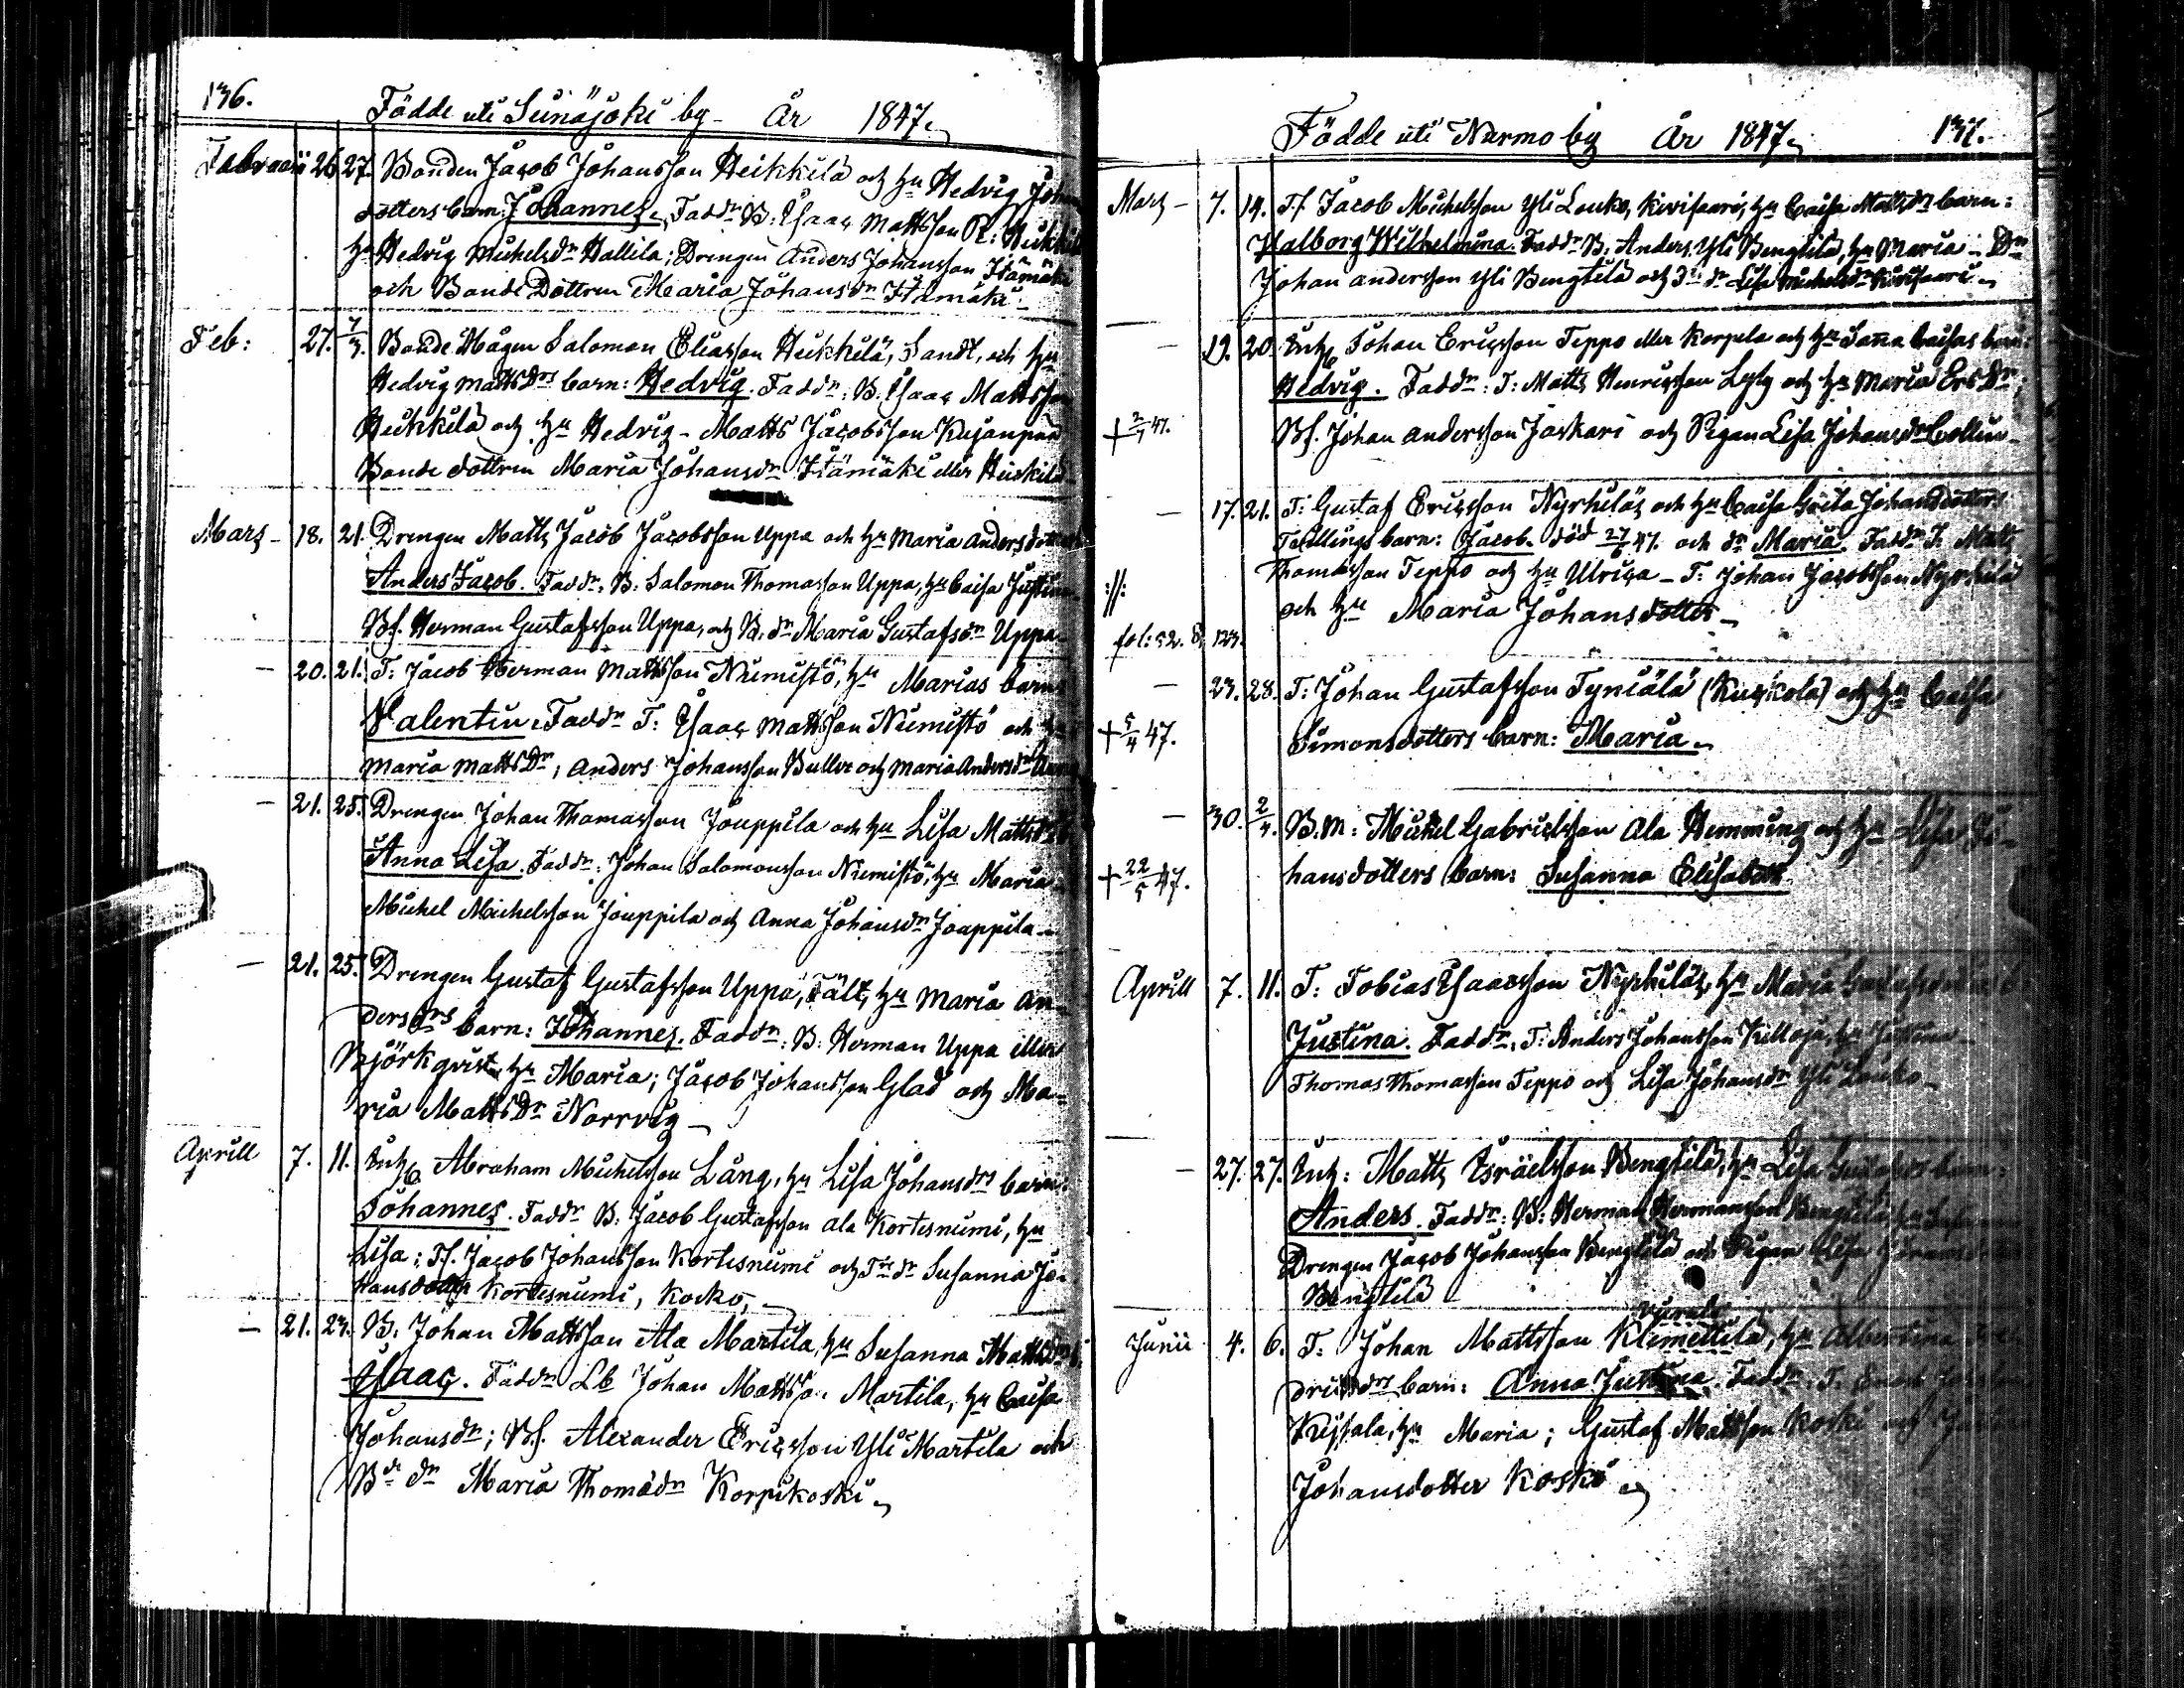 136.
Födde uti Seinäjoki by - År 1847.
Februarii 26 27. Bonden Jacob Johansson Heikkilä och hu Hedvig Johans
dotters barn: Johannes. Faddr B: Isaac Mattsson R: Heikkilä
hu Hedvig Michelsdr Hallila; Drengen Anders Johansson Itämäki
och Bonde Dottren Maria Johansdr Itämäki.
Feb: 27. 7/3. Bonde Mågen Salomon Eliasson Heikkilä, Sandt, och hu
Hedvig Matts Drs barn: Hedvig. Faddr: B. Isaac Mattsson
Heikkilä och hu Hedvig - Matts Jacobsson Kujanpää
Bonde dottren Maria Johansdr Itämäki eller Heikkilä
Mars - 18. 21. Drengen Matts Jacob Jacobsson Uppa och hu Maria Andersdotters
Anders Jacob. Faddr: B: Salomon Thomasson Uppa, hu Caisa Justina
Bf. Herman Gustafsson Uppa, och B. dr Maria Gustafsdr Uppa
- 20. 21. T: Jacob Herman Mattsson Niemistö, hu Marias barn
Valentin. Faddr T: Isaac Mattsson Niemistö och hu
Maria Matts Dr, Anders Johansson Buller och Maria Andersdr
- 21. 25. Drengen Johan Thomasson Jouppila och hu Lisa Matts
Anna Lisa. Faddr: Johan Salomonsson Niemistö, hu Maria
Michel Michelsson Jouppila och Anna Johansdr Jouppila
- 21. 25. Drengen Gustaf Gustafsson Uppa, Fält, hu Maria An-
dersdrs barn: Johannes. Faddr: B: Herman Uppa eller
Björkqvist, hu Maria; Jacob Johansson Glad och Ma-
ria Matts Dr Norrvig
Aprill 7. 11. Inh Abraham Michelsson Lång, hu Lisa Johansdrs barn:
Johannes. Faddr B. Jacob Gustafsson Ala Kortesniemi, hu
Lisa; Tf. Jacob Johansson Kortesniemi och Tre dr Susanna Jo-
hansdotter Kortesniemi, Kosko,
- 21. 23. B. Johan Mattsson Ala Martila, hu Susanna Matts
Isaac. Faddr Lb Johan Mattsson Martila, hu Caisa
Johansdr; Bf. Alexander Ericsson Yli Martila och
Bde dr Maria Thomädr Korpikoski
Födde uti Nurmo by År 1847. 137.
Mars - 7. 14. Tf Jacob Michelsson Yli Louko, Kivisaari, hu Caisa Mattsdrs barn:
Walborg Wilhelmina. Faddr B: Anders Yli Bengtilä, hu Maria - Dn
Johan Andersson Yli Bengtilä och Ju dr Lisa Michelsdr Kivisaari
- 19. 20. Inh Johan Ericsson Teppo eller Korpela och hu Sanna Caisas barn:
Hedvig. Faddr: T: Matts Henricsson Lyly och hu Maria Ers Dr
+ 2/7 47. Bf. Johan Andersson Jaskari och Pigan Lisa Johansdr Collin
- 17. 21. T: Gustaf Ericsson Nyrhilä, och hu Caisa Greta Johansdotters
Tvillings barn: Jacob död 27/6 47. och dr Maria. Faddr T. Matts
:/: Thomasson Teppo och hu Ulrica - T: Johan Jacobsson Nyrhilä
och hu Maria Johansdotter
fol: 52. & 123.
- 23. 28. T: Johan Gustafsson Tyniälä (Kuskola) och hu Caisa
+ 5/4 47. Simonsdotters barn: Maria
- 30. 2/4. B.M: Michel Gabrielsson Ala Hemming och hu Lisa Jo-
+ 22/5 47. hansdotters barn: Susanna Elisabeth
Aprill 7. 11. T: Tobias Isaacsson Nyrhilä, hu Maria
Justina. Faddr. T: Anders Johansson Killoja, hu Justina
Thomas Thomasson Teppo och Lisa Johansdr Yli Louko
- 27. 27. Inh: Matts Israelsson Bengtilä, hu Lisa barn:
Anders. Faddr: B: Herman Hermansson Bengtilä, hu
Drengen Jacob Johansson Bengtilä och Pigan Lisa
Bengtilä
Junii 4. 6. T: Johan Mattsson Klemettilä, hu Albertina
drsdrs barn: Anna Justina. Faddr. T:
hu Maria; Gustaf Mattsson Koski och
Johansdotter Koski